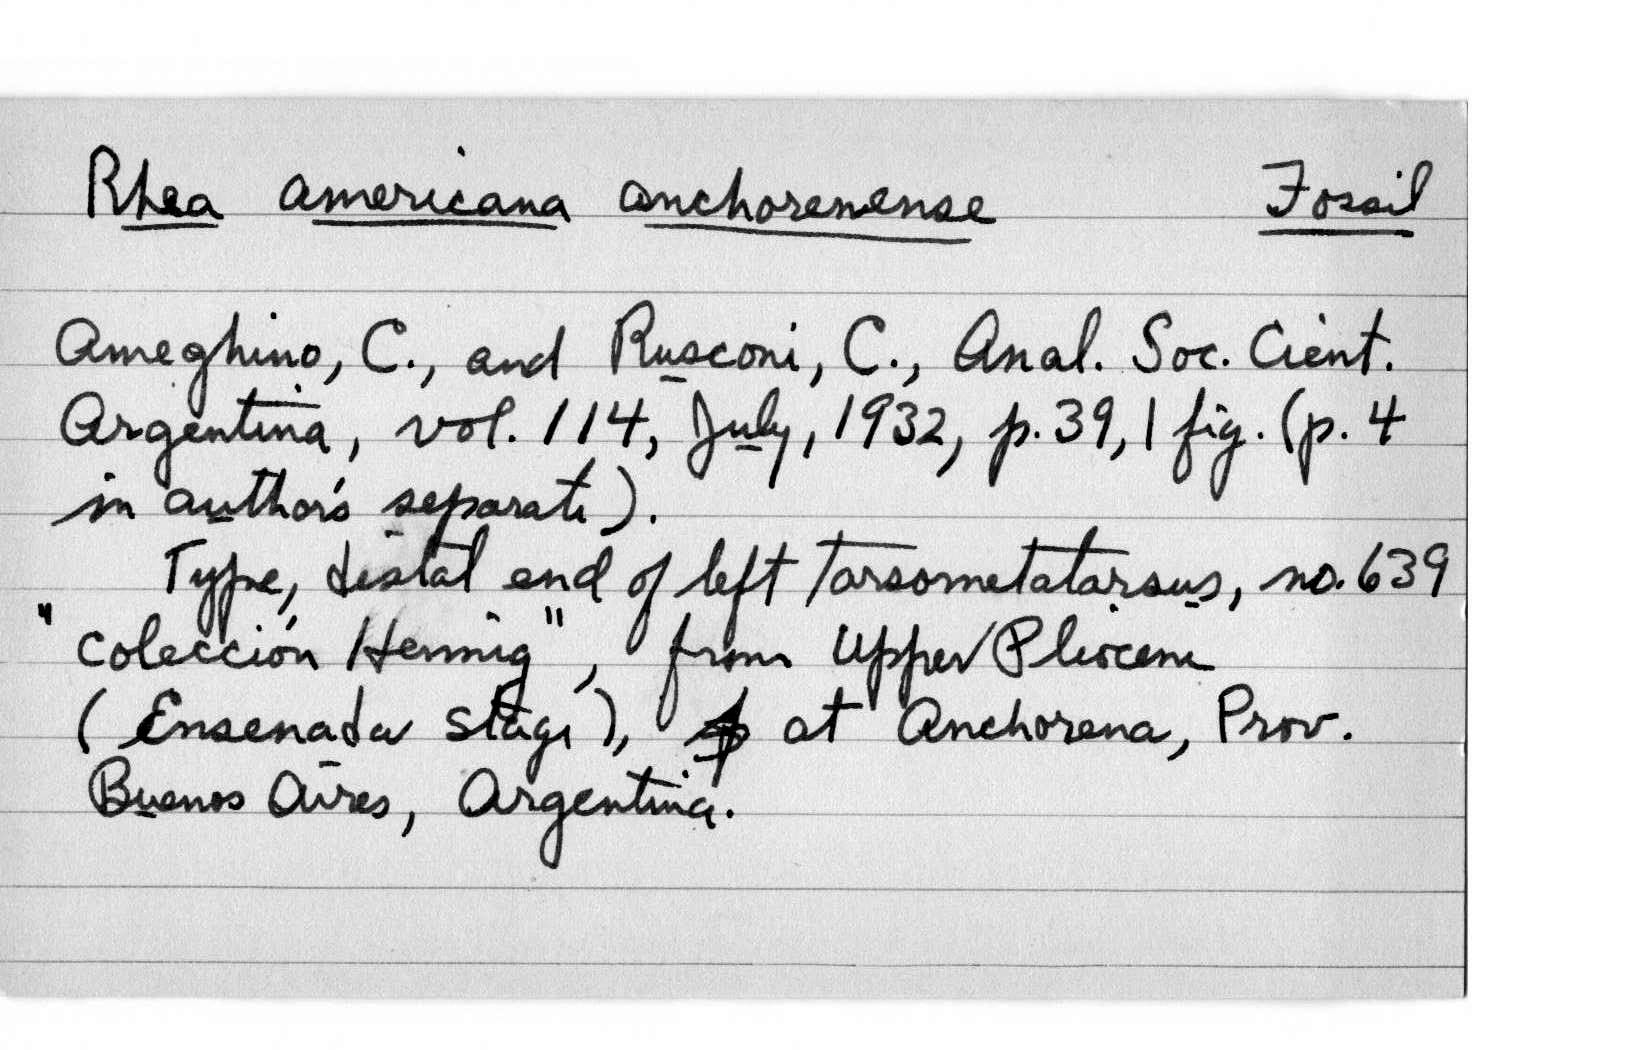 Rhea americana anchorenense Fossil
Ameghino, C., and Rusconi, C., Anal. Soc. Cient.
Argentina, vol. 114, July, 1932, p. 39, 1 fig. (p. 4
in author's separate).
Type, distal end of left tarsometatarsus, no. 639
"Colección Hennig", from Upper Pliocene
(Ensenada stage), at Anchorena, Prov.
Buenos Aires, Argentina.